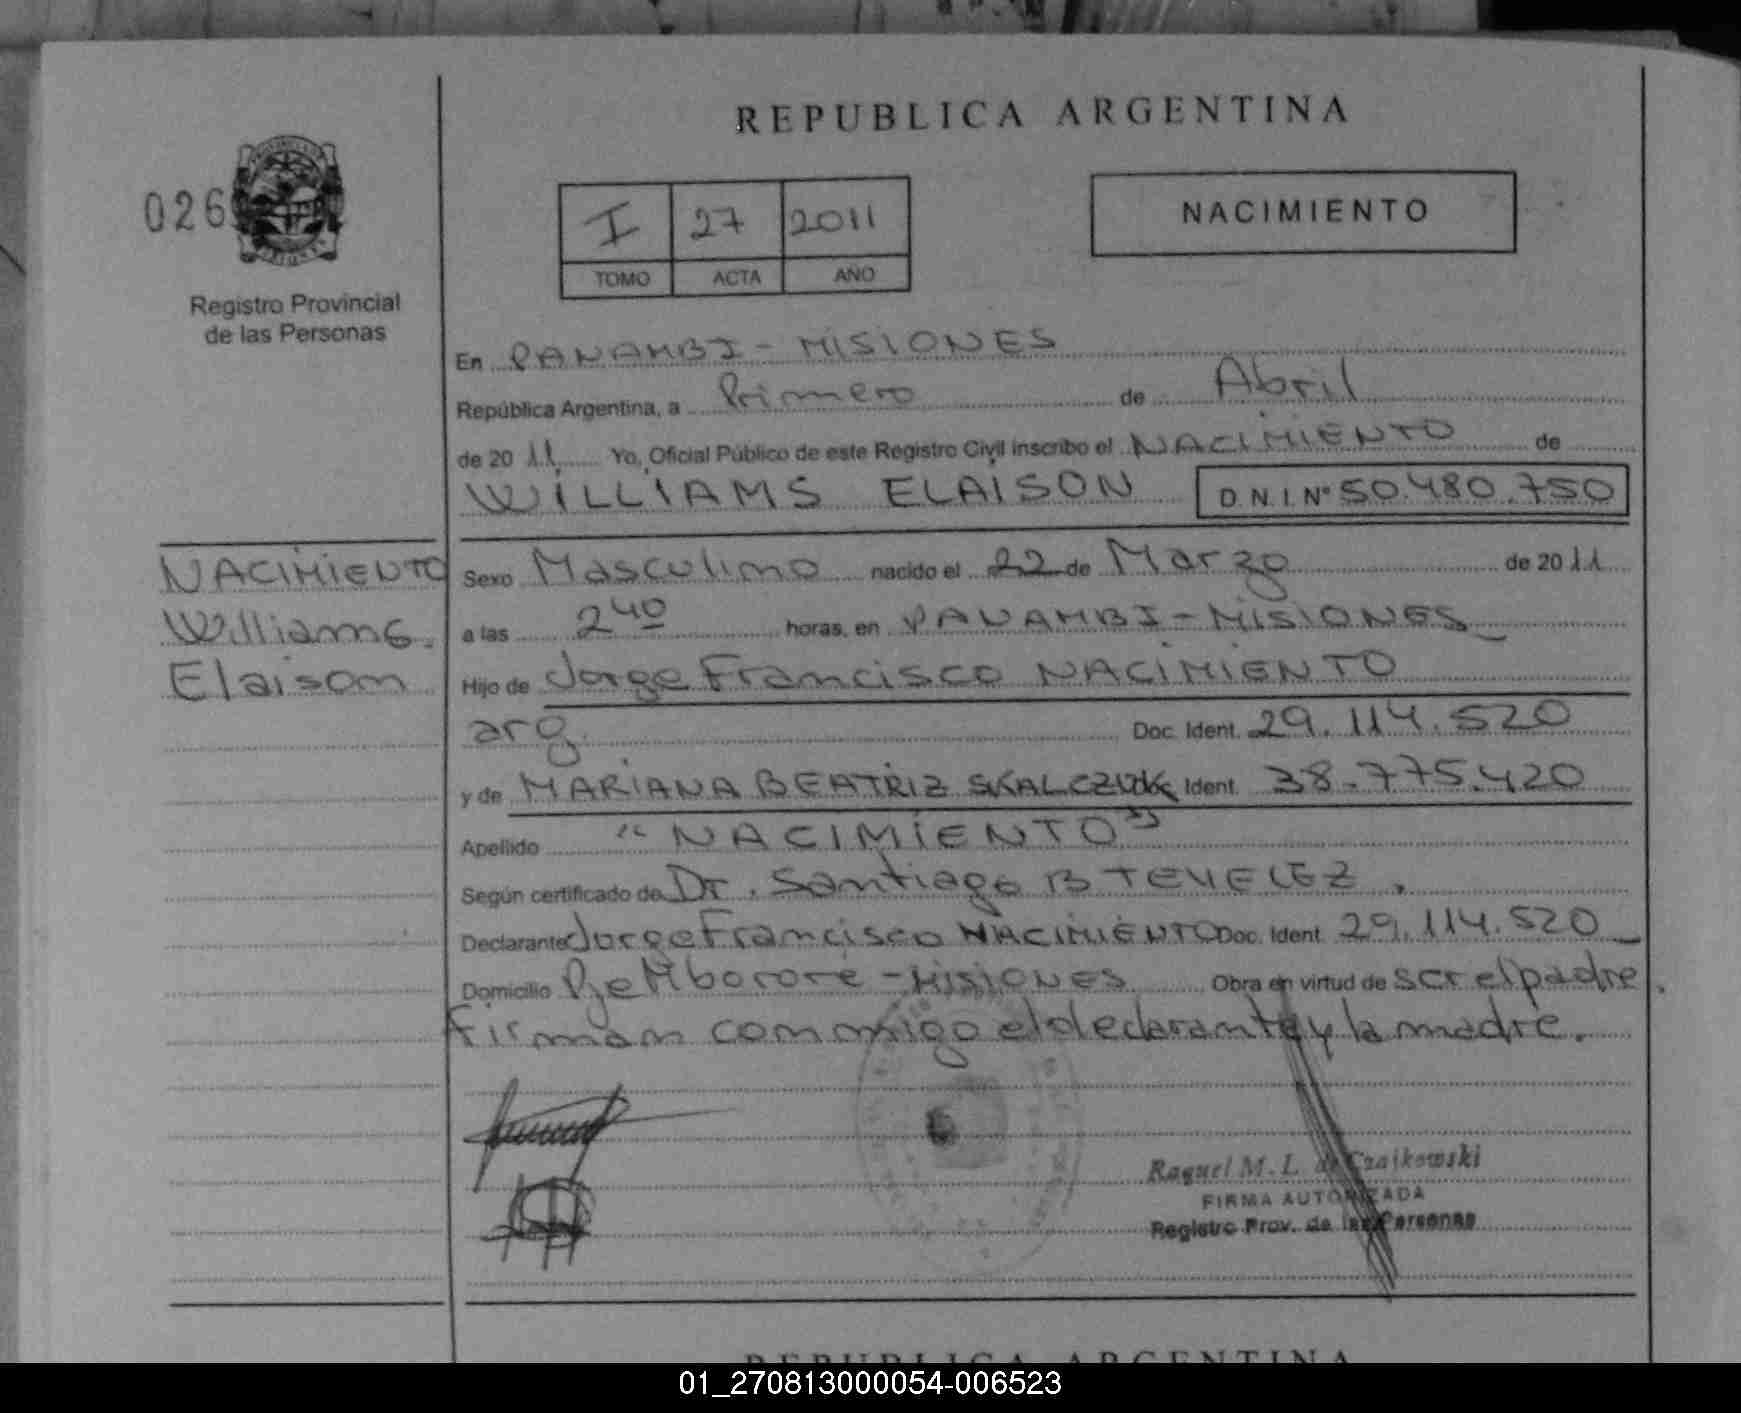 REPUBLICA ARGENTINA
026
I 27 2011
TOMO ACTA AÑO
NACIMIENTO
Registro Provincial
de las Personas
En PANAMBI - MISIONES
República Argentina, a Primero de Abril
de 20 11 Yo, Oficial Público de este Registro Civil inscribo el NACIMIENTO de
WILLIAMS ELAISON D.N.I. Nº 50.480.750
NACIMIENTO
Williams
Elaison
Sexo Masculino nacido el 22 de Marzo de 20 11
a las 2 40 horas, en PANAMBI - MISIONES
Hijo de Jorge Francisco NACIMIENTO
arg. Doc. Ident. 29.114.520
y de MARIANA BEATRIZ SKALCZUK Ident. 38.775.420
Apellido "NACIMIENTO"
Según certificado de Dr. Santiago B TEVELEZ.
Declarante Jorge Francisco NACIMIENTO Doc. Ident. 29.114.520
Domicilio Pje Mborore - MISIONES Obra en virtud de ser el padre.
Firman conmigo el declarante y la madre.
Raquel M. L. de Czajkowski
FIRMA AUTORIZADA
Registro Prov. de las Personas
REPUBLICA ARGENTINA
01_270813000054-006523